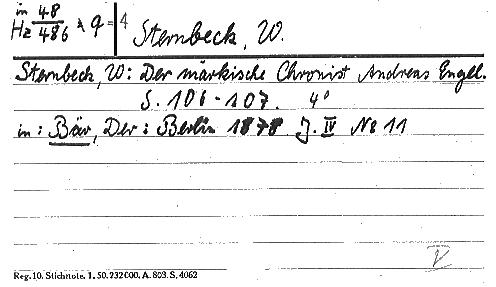 in 48
Hz 486 a q=4
Sternbeck, W.
Sternbeck, W: Der märkische Chronist Andreas Engel.
S. 106-107. 4°
in: Bär, Der: Berlin 1878 J. IV No 11
V
Reg. 10. Stichnote. 1. 50. 232000. A. 803. S. 4062